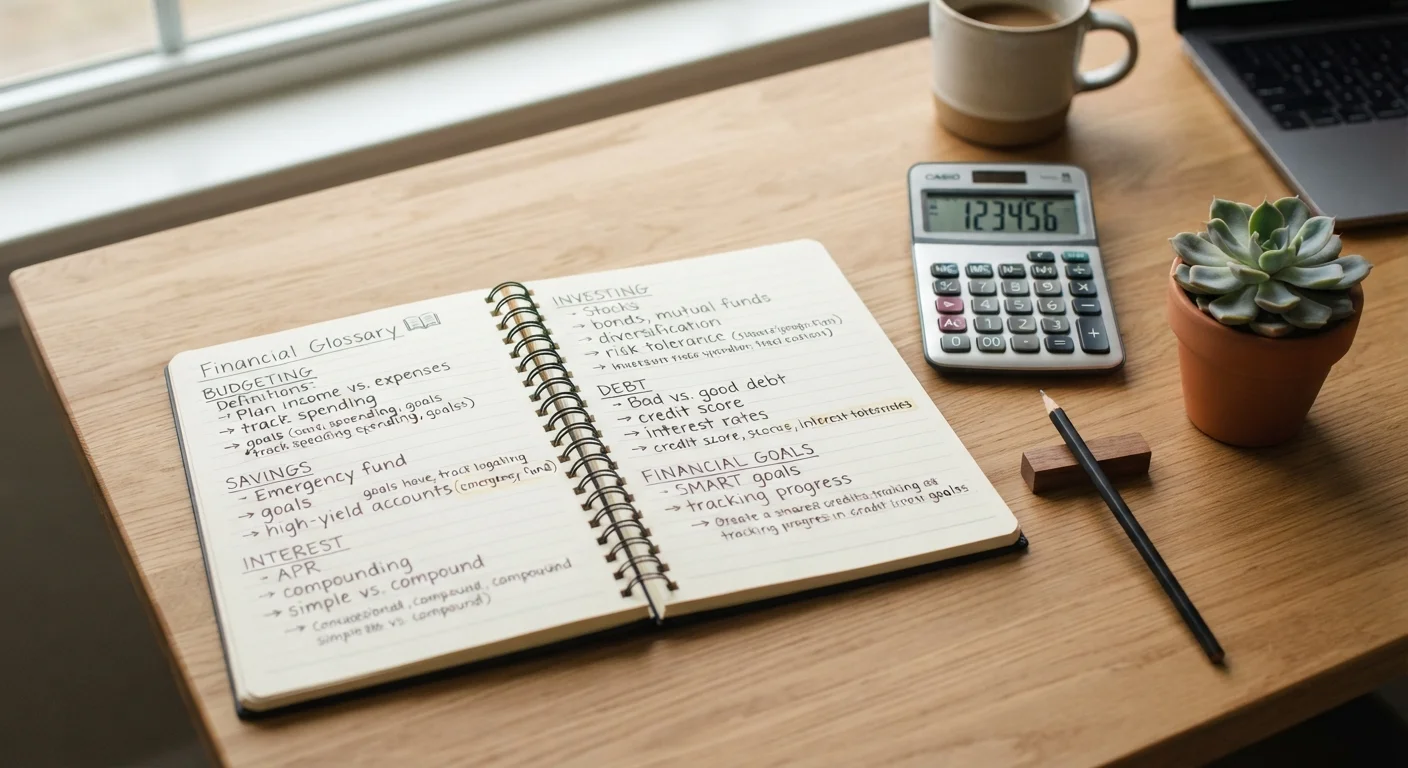 Financial Glossary
BUDGETING
Definitions:
→ Plan income vs. expenses
→ track spending
→ goals spending, goals
→ track spending goals)
SAVINGS
- Emergency fund
→ goals goals have, track
→ high-yield accounts fund)
INTEREST
- APR
→ compounding
→ simple vs. compound
→ compound, compound
vs. compound)
INVESTING
- Stocks
→ bonds, mutual funds
→ diversification
→ risk tolerance
DEBT
→ Bad vs. good debt
→ credit score
→ interest rates
→ credit score, interest
FINANCIAL GOALS
- SMART goals
→ tracking progress
→ Create a tracking
tracking in credit goals
CASIO
123456
7 8 9
4 5 6
AC 1 2 3 +
0 00